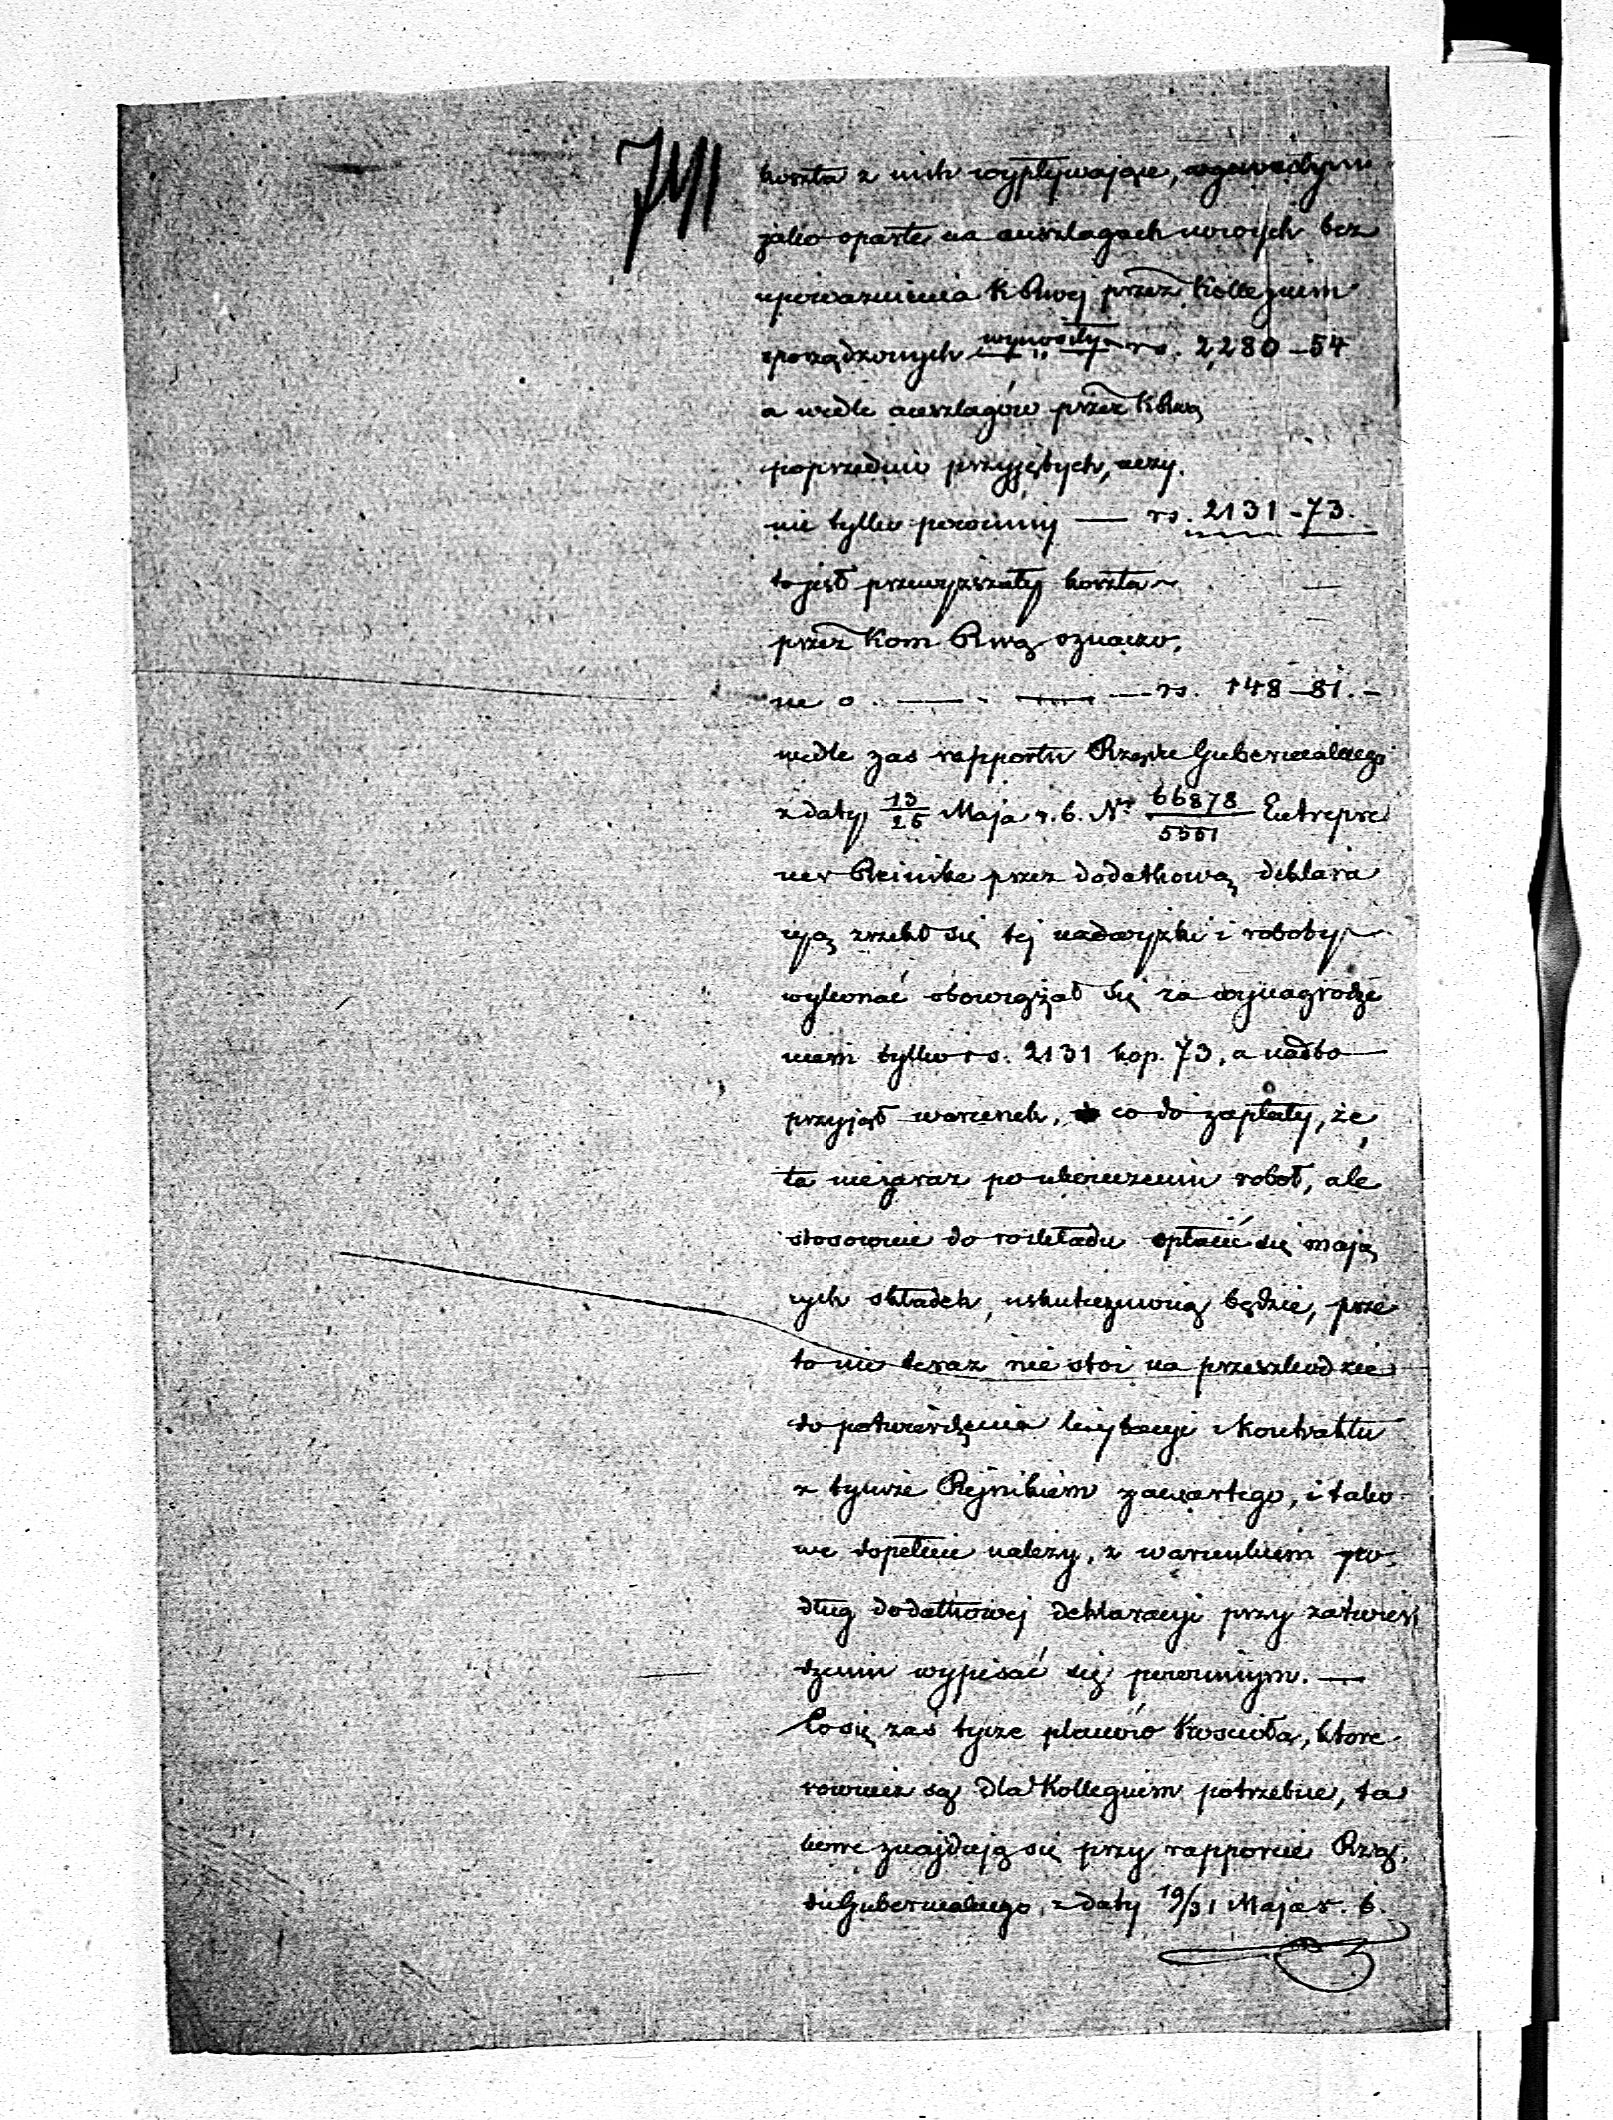 koszta z nich wypływające,
jako oparte na anszlagach nowych bez
upoważnienia K Rwej przez Kollegium
sporządzonych wynosiły rs. 2,280 – 54
a wedle anszlagów przez KRwą
poprzednio przyjętych, uczy,
nić tylko powinny — rs. 2131 – 73.
to jest przewyższały koszta
przez Kom Rwą oznaczo,
ne o — — — rs. 148 – 81. –
wedle zas rapportu Rządu Gubernialnego
z daty 13/25 Maja r. b. Nr 66878/5551 Entrepre
ner Reinike przez dodatkową deklara
cyą zrzekł się tej nadwyżki i roboty
wykonać obowiązał się za wynagrodze
niem tylko rs. 2131 kop. 73, a nadto —
przyjął warunek, co do zapłaty, że
ta nie zaraz po ukończeniu robot, ale
stosownie do rozkładu opłacić się mają
cych składek, uskutecznioną będzie, prze
to nic teraz nie stoi na przeszkodzie
do potwierdzenia licytacyi i kontraktu
z tymże Rejnikiem zawartego, i tako
we dopełnić należy, z warunkiem po,
dług dodatkowej deklaracyi przy zatwier
dzeniu wypisać się powinnym. —
Co się zaś tycze planów Kościoła, które
rownież są dla Kollegium potrzebne, ta
kowe znajdują się przy rapporcie Rzą,
du Gubernialnego, z daty 19/31 Maja r. b.